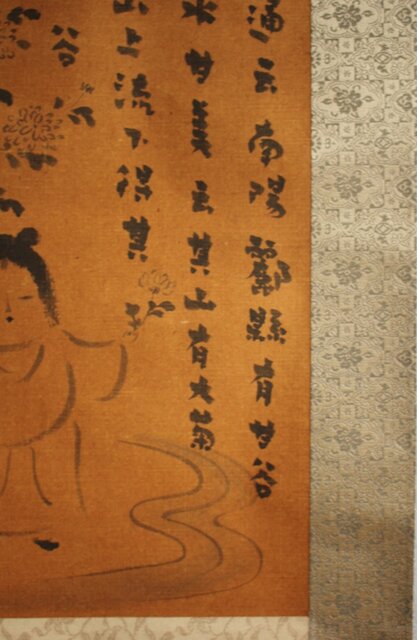 通云南陽酈縣有甘谷
水甘美云其山有大菊
山上流下得其
谷